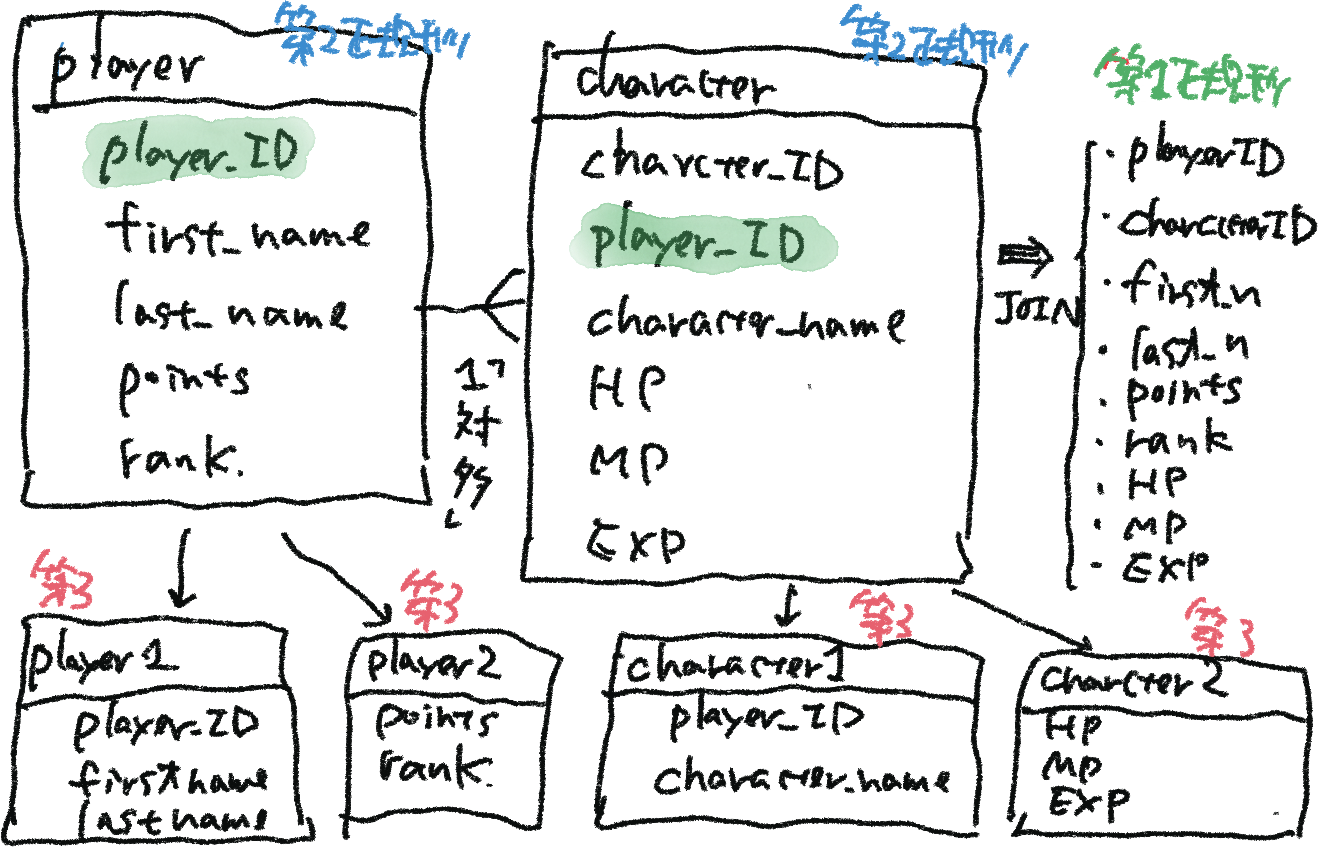 第2正規形
player
player_ID
first_name
last_name
points
rank.
1
対
多
第2正規形
character
charcter_ID
player_ID
character_name
HP
MP
EXP
JOIN
第1正規形
・playerID
・charcterID
・first_n
・last_n
・points
・rank
・HP
・MP
・EXP
第3
player1
player_ID
firstname
lastname
第3
player2
points
rank.
第3
character1
player_ID
character_name
第3
charcter2
HP
MP
EXP